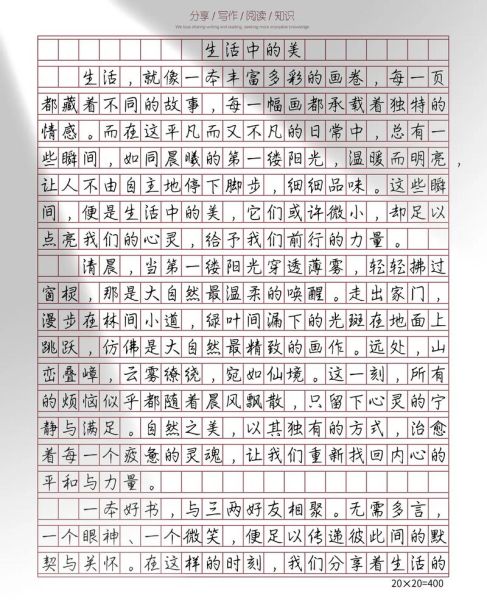 分享/写作/阅读/知识
We love sharing writing and reading, seeking more innovative knowledge
生活中的美
生活，就像一本丰富多彩的画卷，每一页
都藏着不同的故事，每一幅画都承载着独特的
情感。而在这平凡而又不凡的日常中，总有一
些瞬间，如同晨曦的第一缕阳光，温暖而明亮，
让人不由自主地停下脚步，细细品味。这些瞬
间，便是生活中的美，它们或许微小，却足以
点亮我们的心灵，给予我们前行的力量。
清晨，当第一缕阳光穿透薄雾，轻轻拂过
窗棂，那是大自然最温柔的唤醒。走出家门，
漫步在林间小道，绿叶间漏下的光斑在地面上
跳跃，仿佛是大自然最精致的画作。远处，山
峦叠嶂，云雾缭绕，宛如仙境。这一刻，所有
的烦恼似乎都随着晨风飘散，只留下心灵的宁
静与满足。自然之美，以其独有的方式，治愈
着每一个疲惫的灵魂，让我们重新找回内心的
平和与力量。
一本好书，与三两好友相聚。无需多言，
一个眼神、一个微笑，便足以传递彼此间的默
契与关怀。在这样的时刻，我们分享着生活的
20×20=400